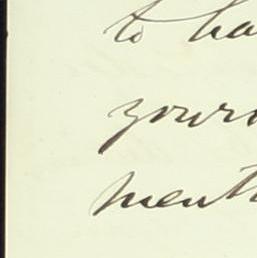 to ha
your
ment